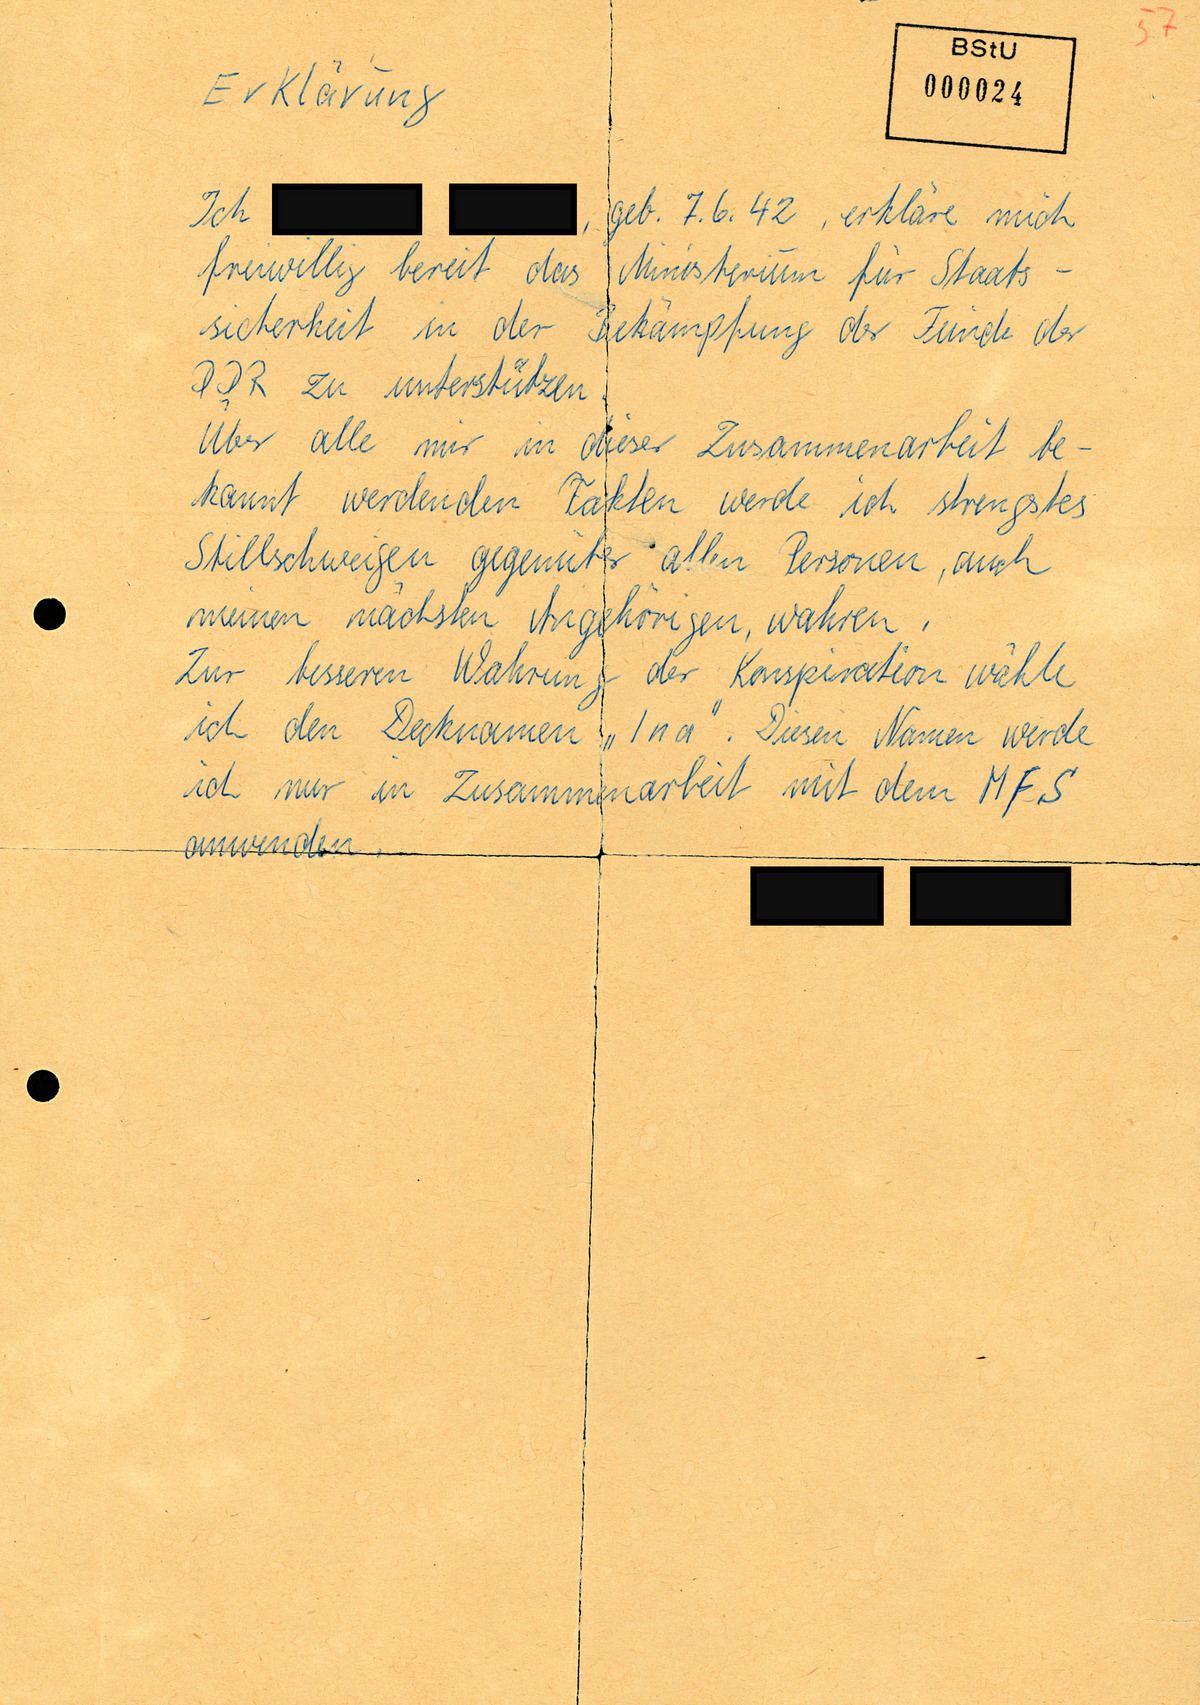 57
BStU
000024
Erklärung
Ich , geb. 7.6.42 , erkläre mich
freiwillig bereit das Ministerium für Staats-
sicherheit in der Bekämpfung der Feinde der
DDR zu unterstützen.
Über alle mir in dieser Zusammenarbeit be-
kannt werdenden Fakten werde ich strengstes
Stillschweigen gegenüber allen Personen, auch
meinen nächsten Angehörigen, wahren.
Zur besseren Wahrung der Konspiration wähle
ich den Decknamen „Ina". Diesen Namen werde
ich nur in Zusammenarbeit mit dem MFS
anwenden.